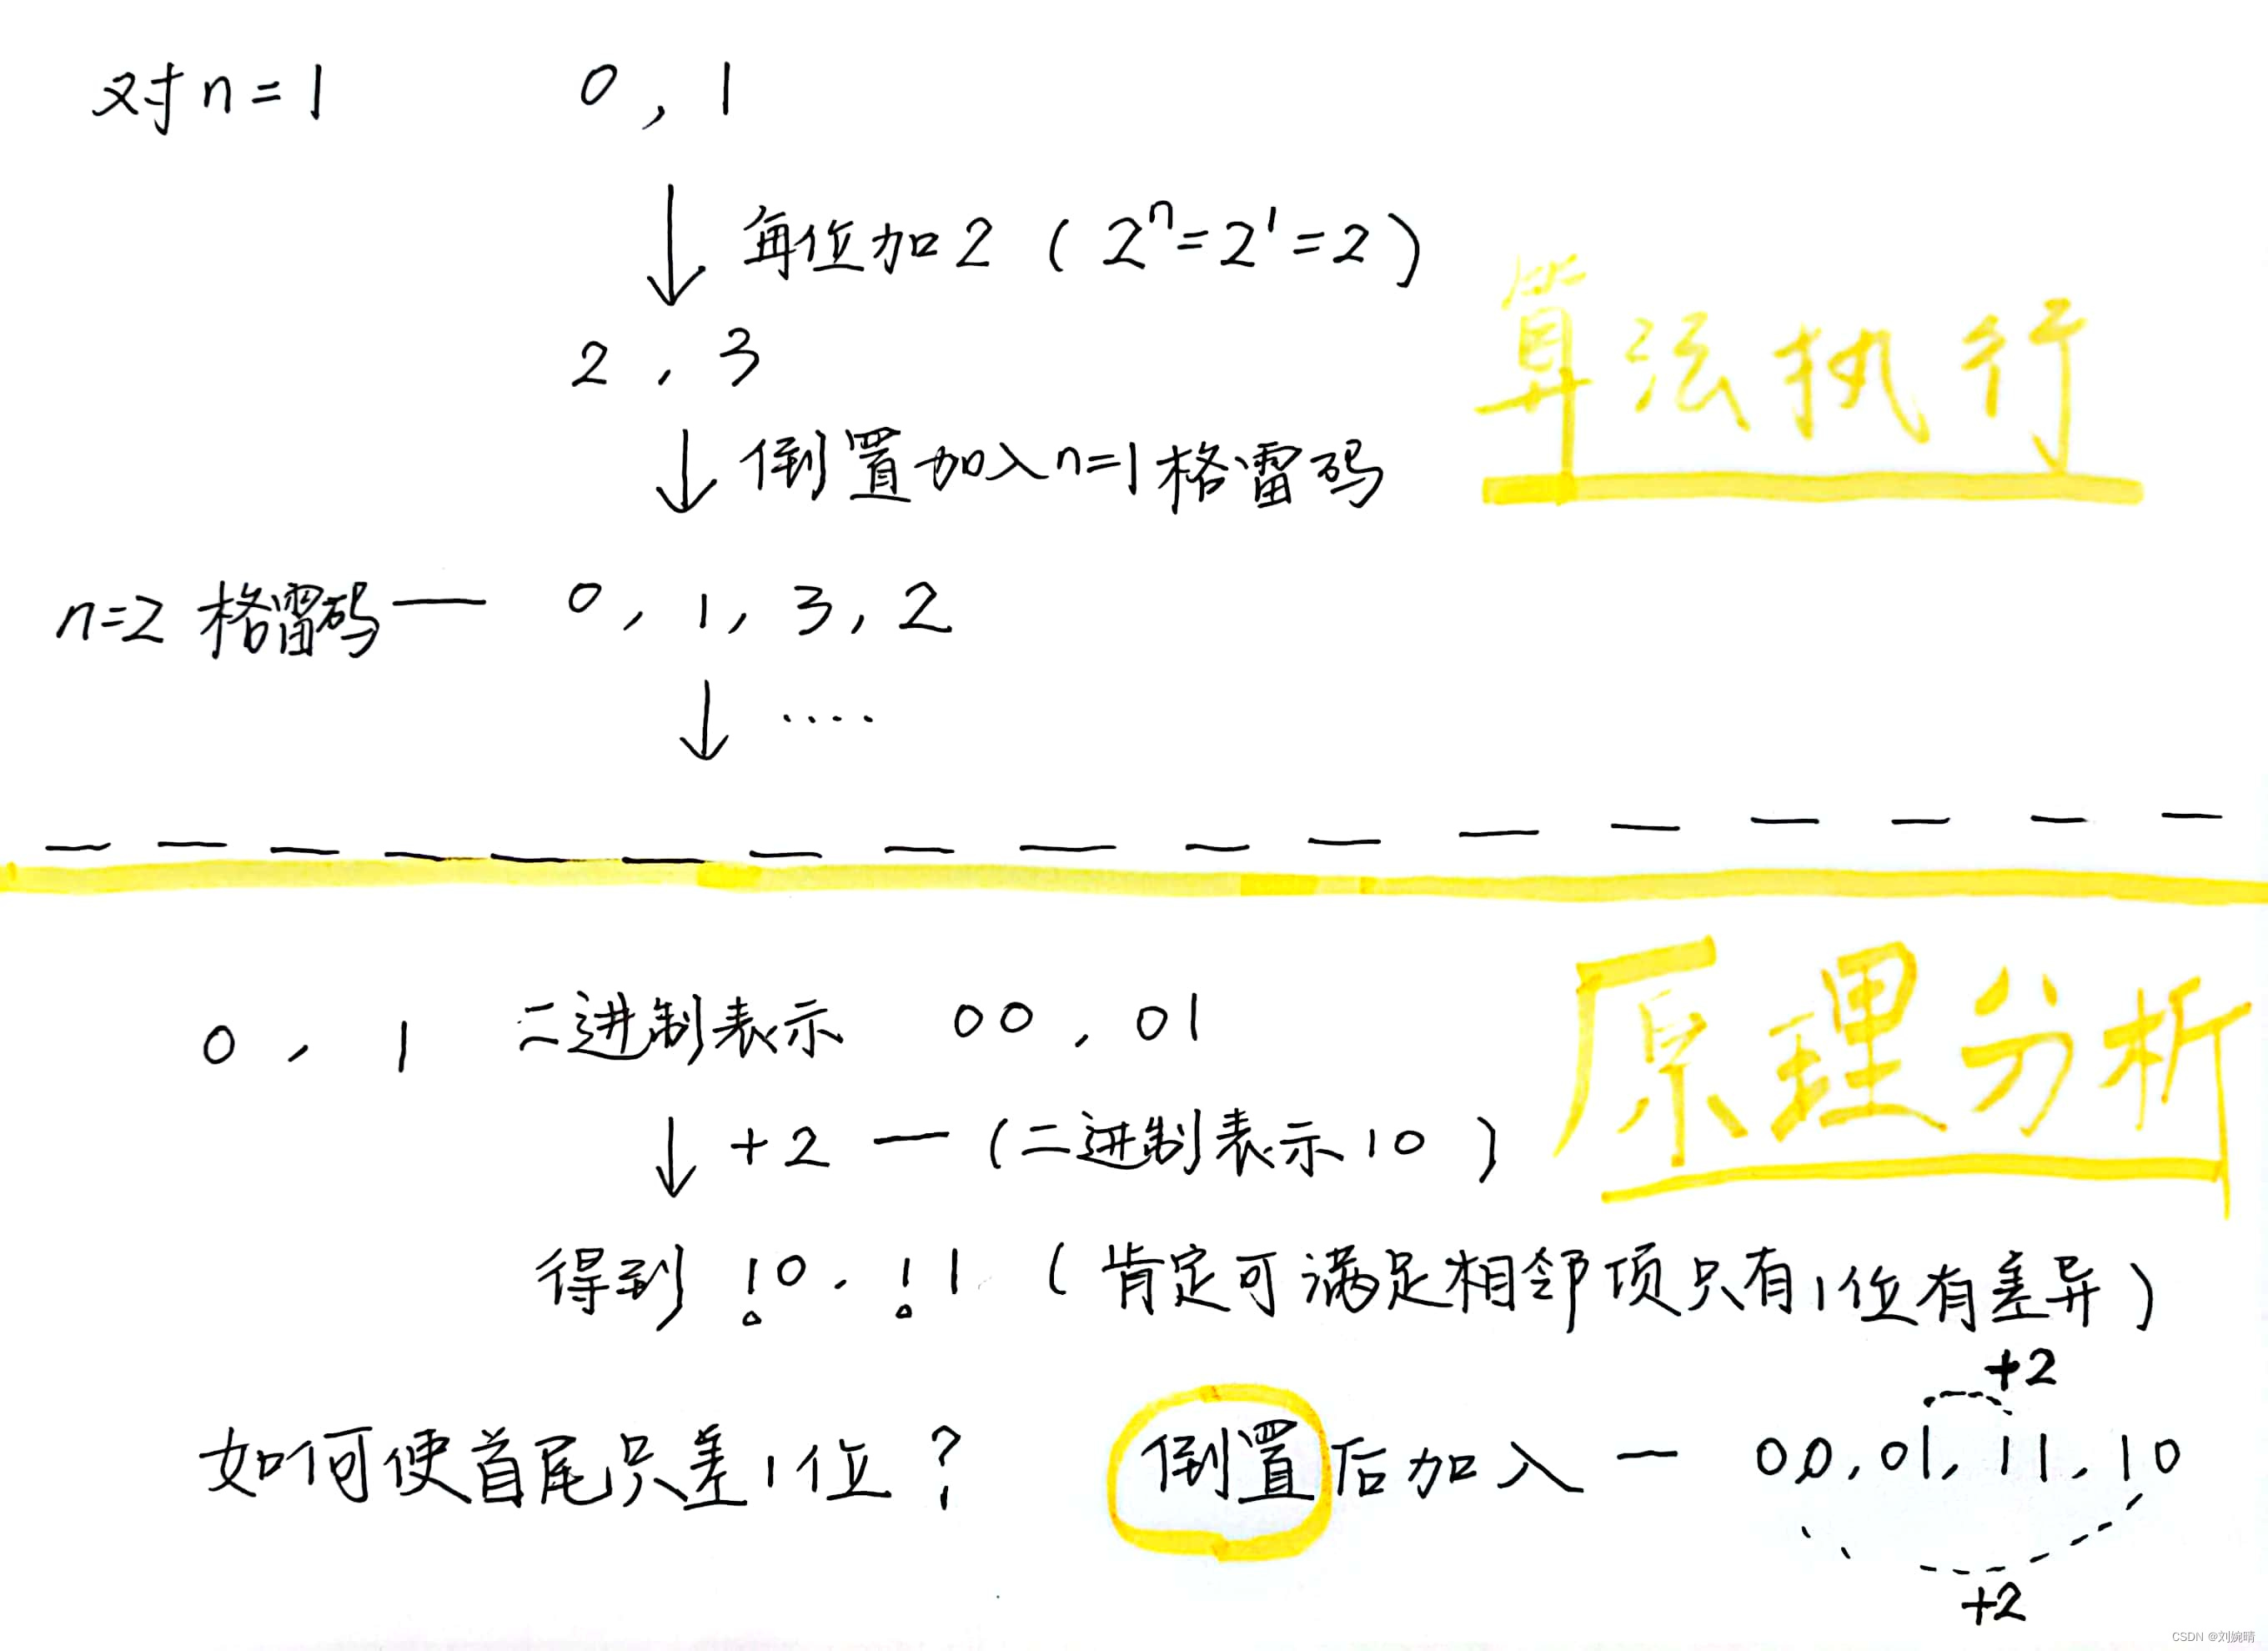 对n=1 0，1
每位加2（2ⁿ=2¹=2）
算法执行
2，3
倒置加入n=1格雷码
n=2格雷码— 0，1，3，2
····
原理分析
0，1 二进制表示 00，01
+2 —（二进制表示10）
得到 10，11（肯定可满足相邻项只有1位有差异）
+2
如何使首尾只差1位？ 倒置后加入 — 00，01，11，10
+2
CSDN @刘婉晴